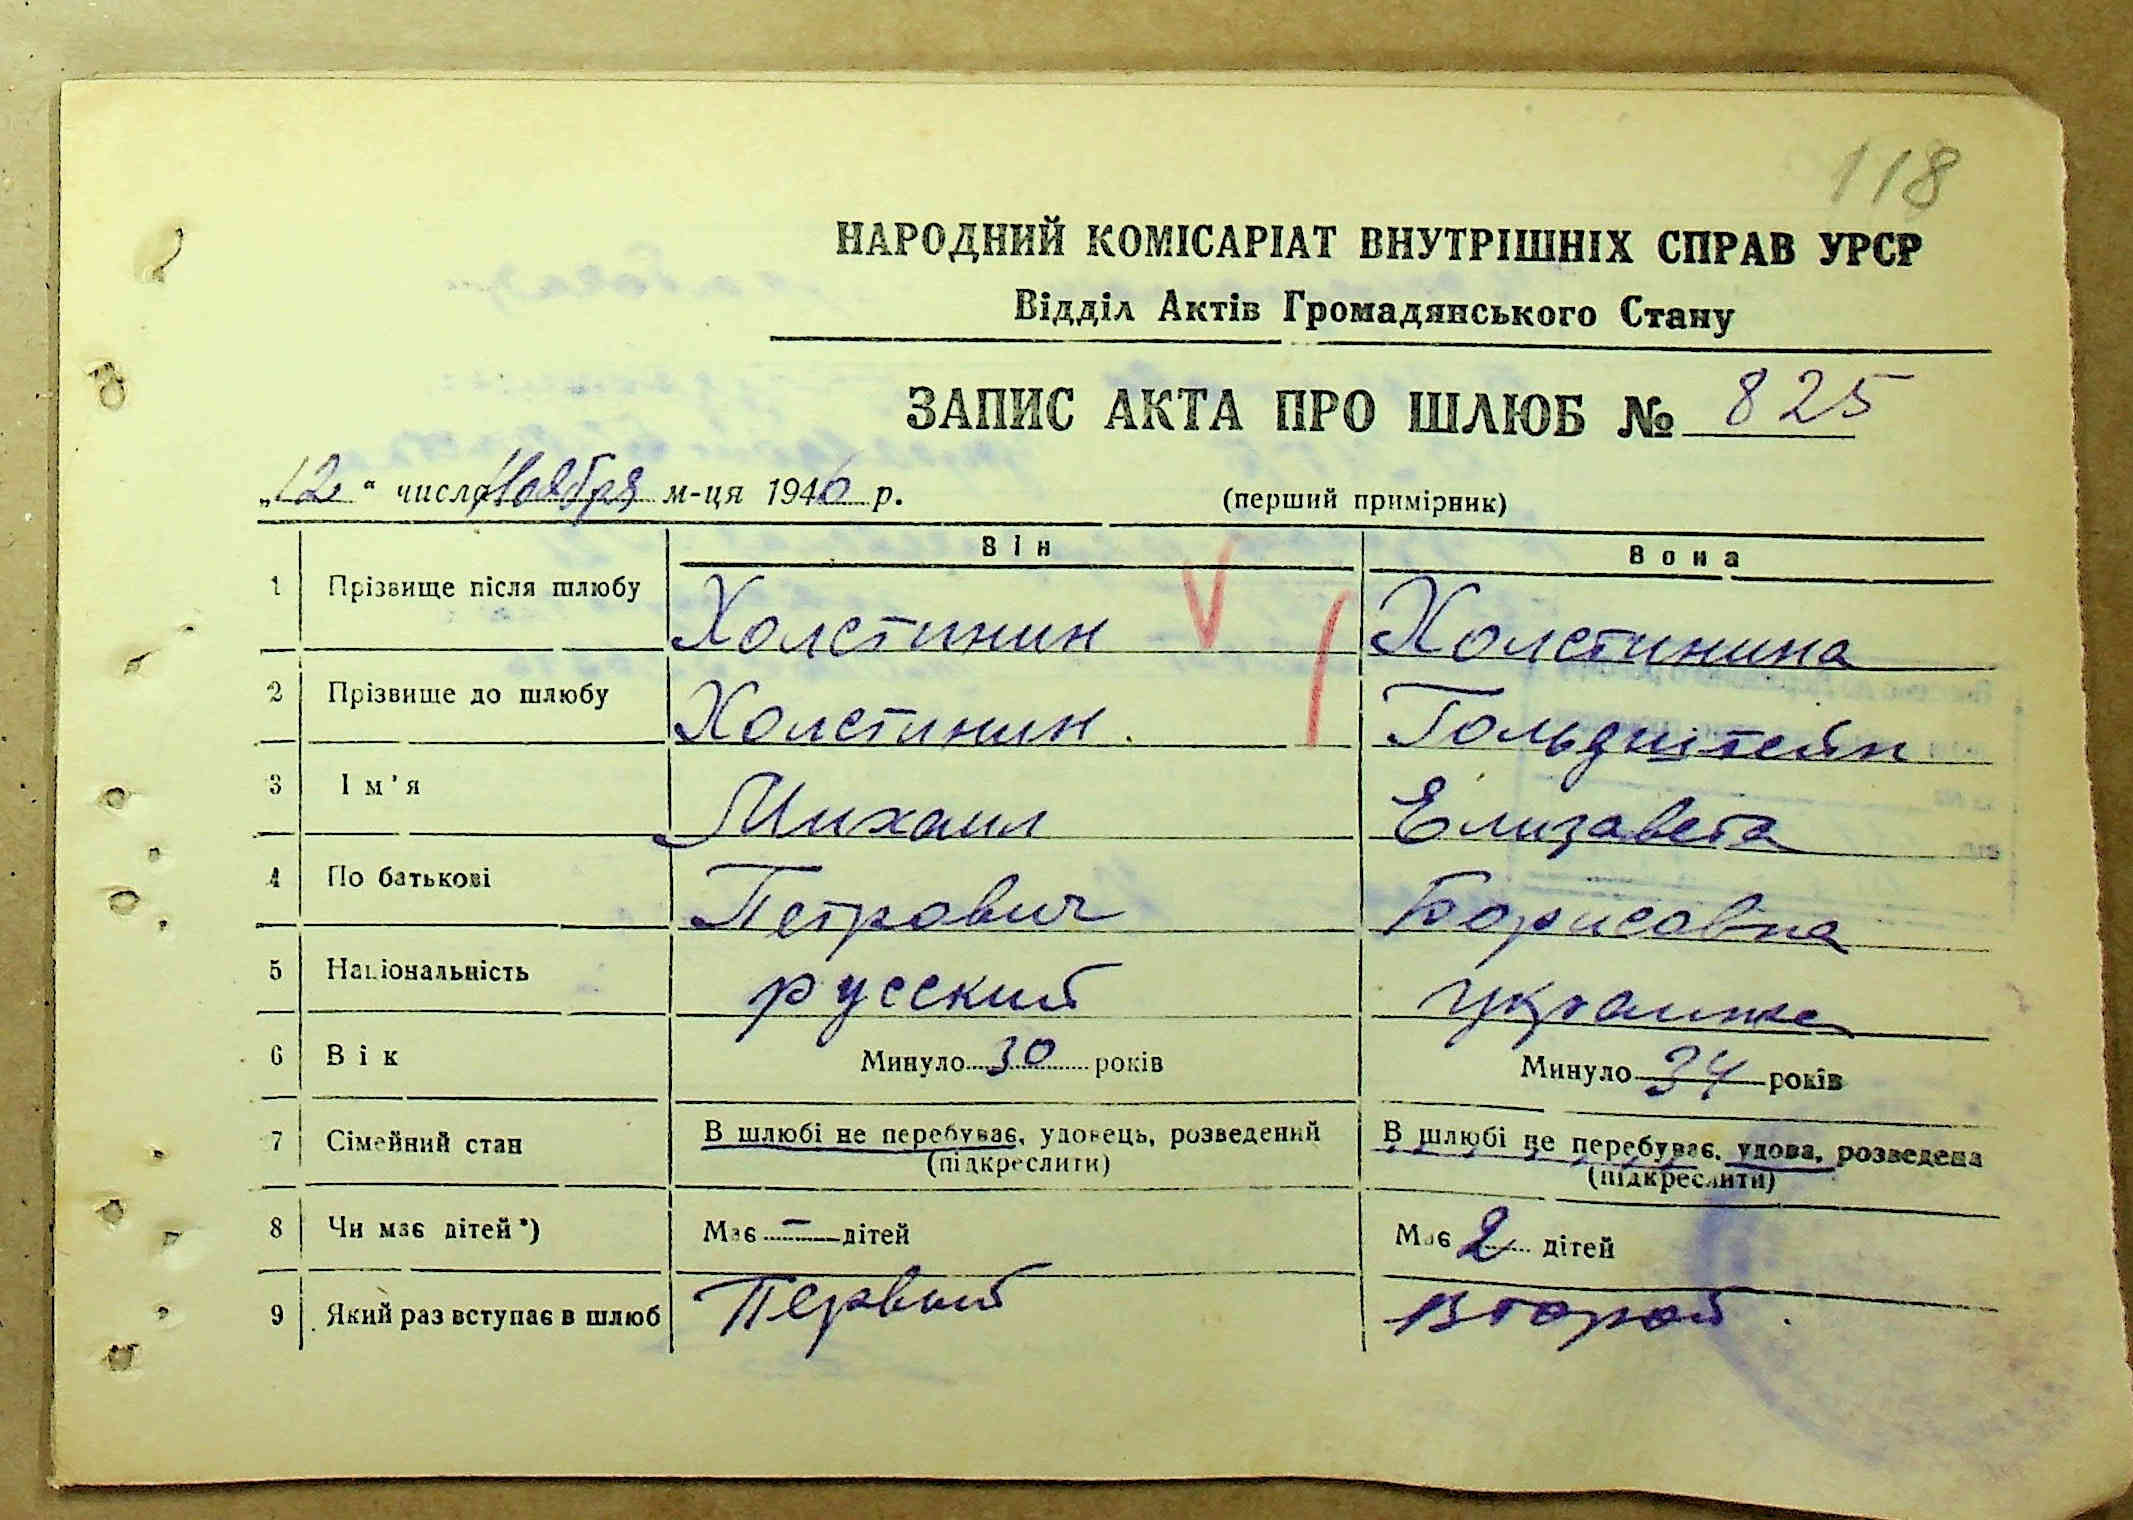 118
НАРОДНИЙ КОМІСАРІАТ ВНУТРІШНІХ СПРАВ УРСР
Відділ Актів Громадянського Стану
ЗАПИС АКТА ПРО ШЛЮБ № 825
„12“ числа Ноября м-ця 1946 р. (перший примірник)
Він Вона
1 Прізвище після шлюбу Холстинин Холстинина
2 Прізвище до шлюбу Холстинин. Гольдштейн
3 Ім'я Михаил Елизавета
4 По батькові Петрович Борисовна
5 Національність русский украинка
6 Вік Минуло 30 років Минуло 34 років
7 Сімейний стан В шлюбі не перебуває, удовець, розведений В шлюбі не перебуває, удова, розведена
(підкреслити) (підкреслити)
8 Чи має дітей*) Має — дітей Має 2 дітей
9 Який раз вступає в шлюб Первый Второй.